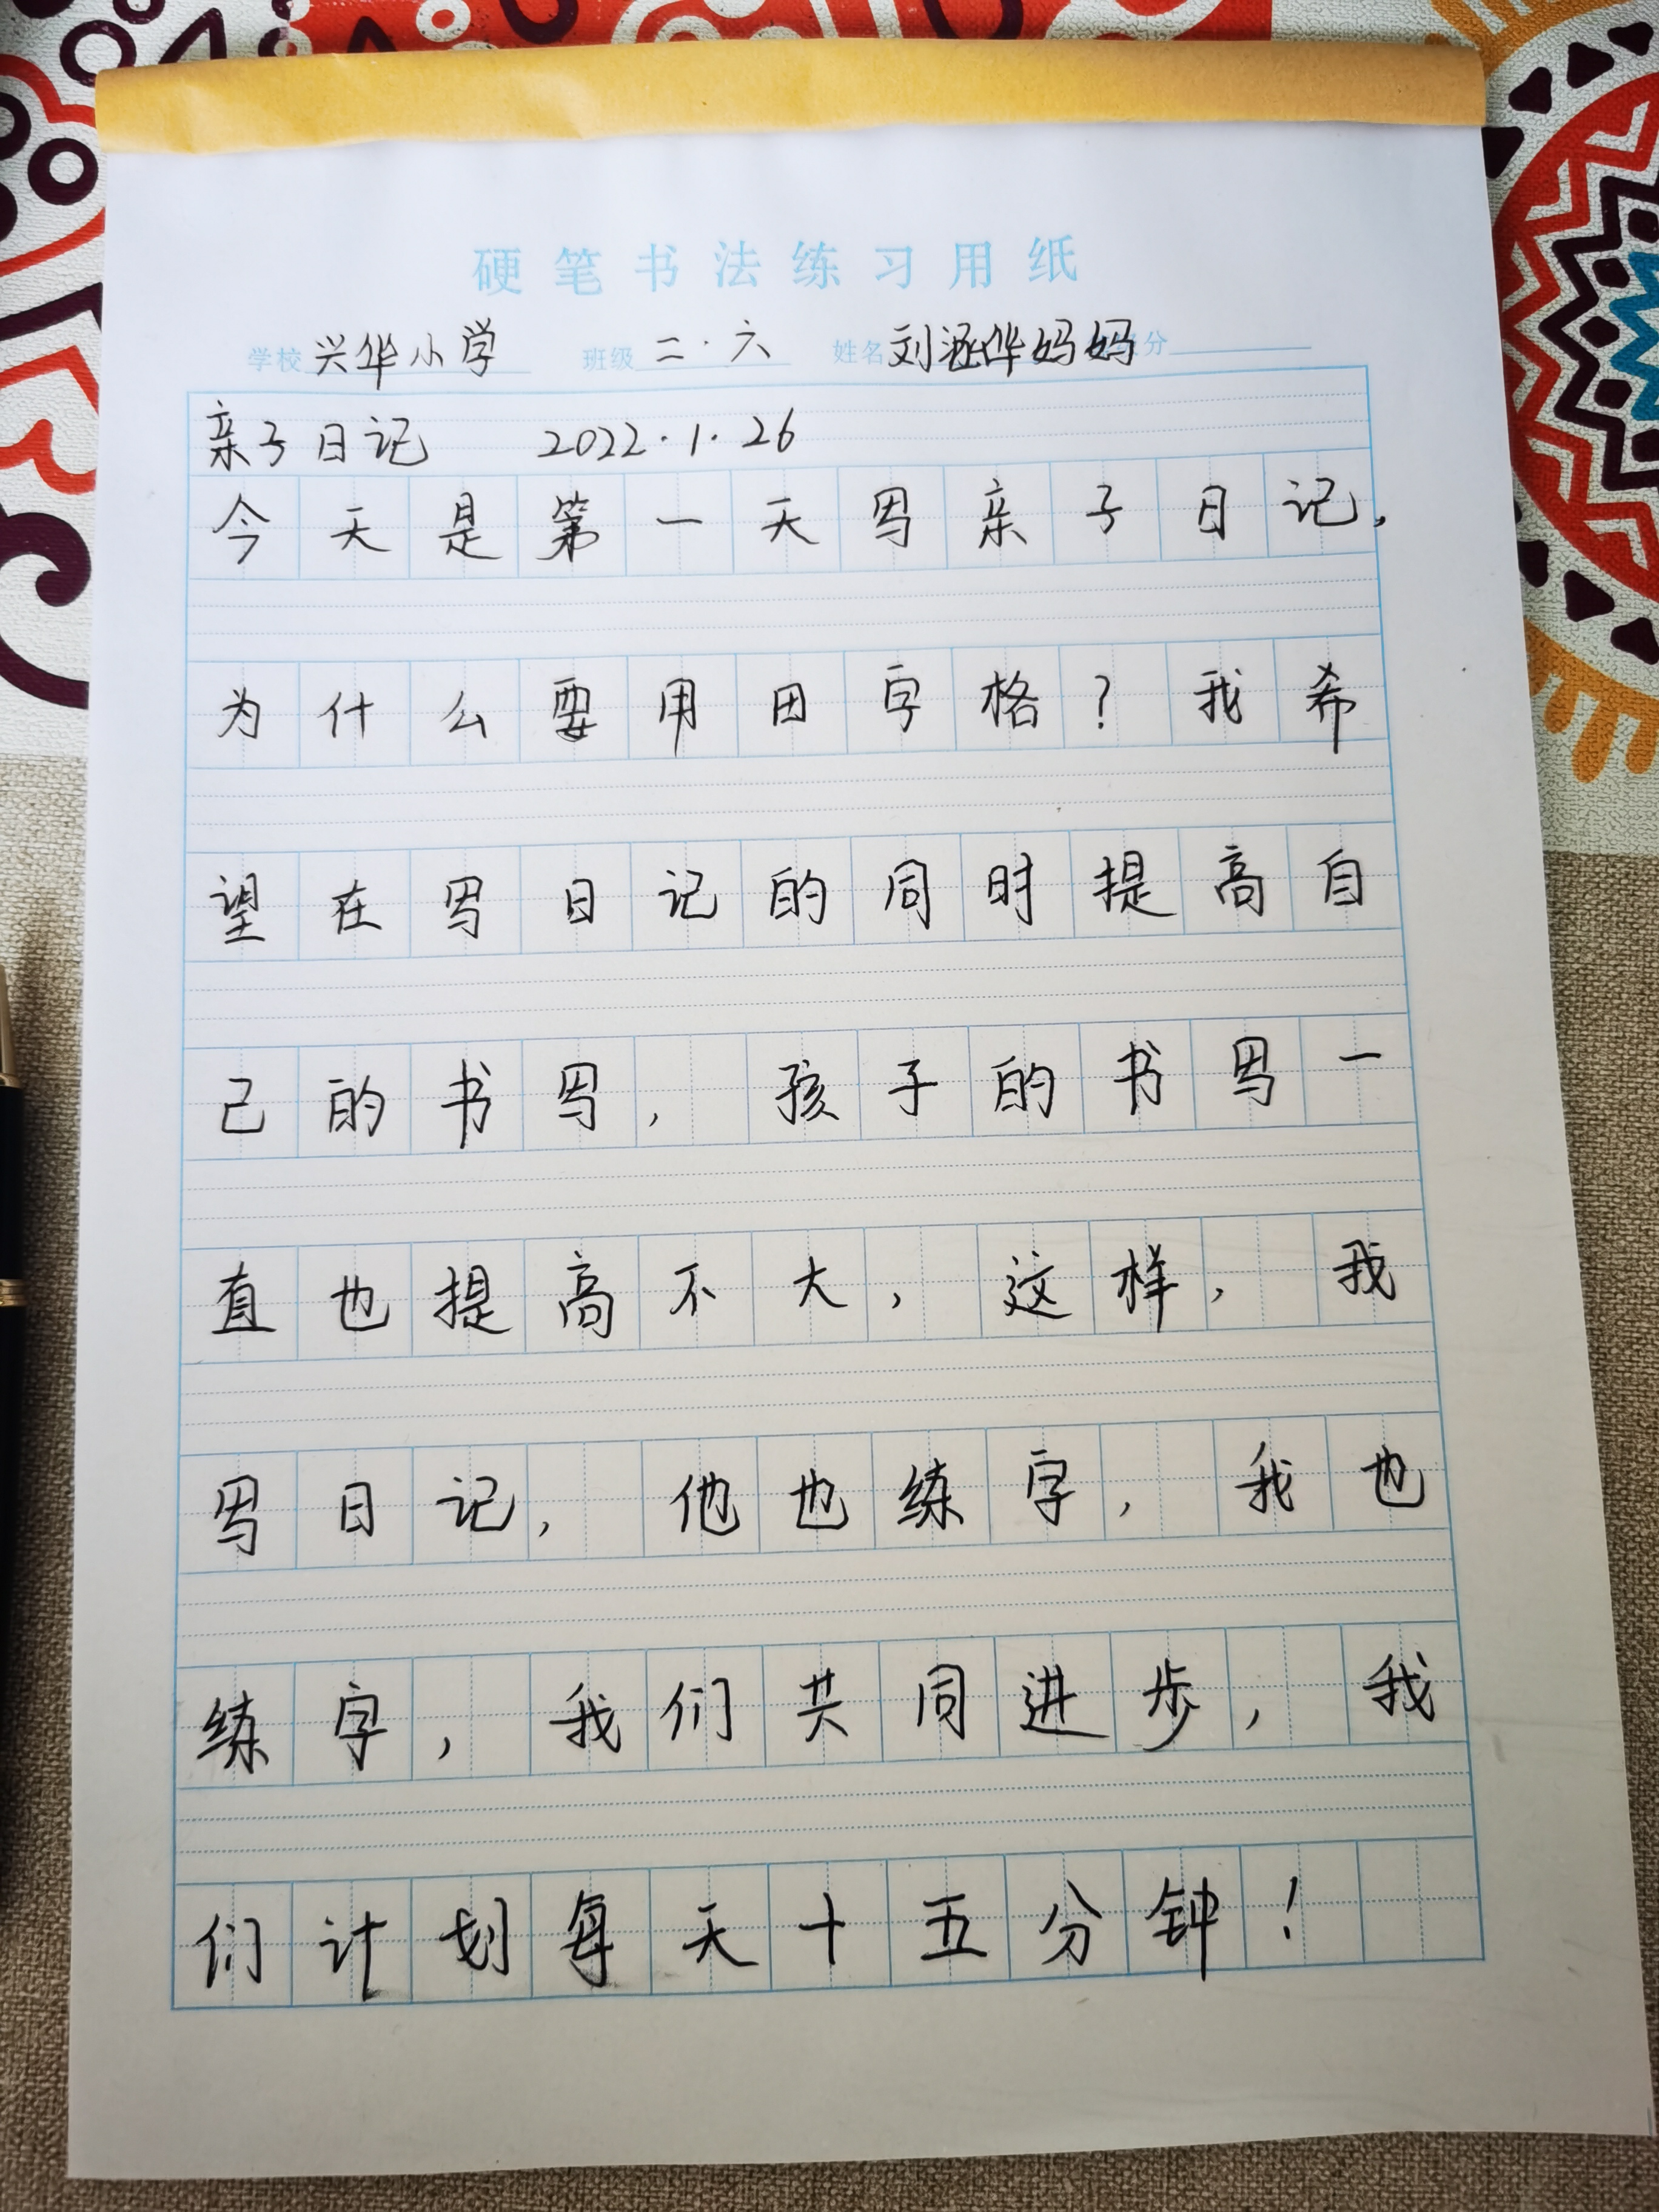 硬笔书法练习用纸
学校 兴华小学 班级 二·六 姓名 刘涵烨妈妈 分
亲子日记 2022.1.26
今天是第一天写亲子日记,
为什么要用田字格?我希
望在写日记的同时提高自
己的书写,孩子的书写一
直也提高不大,这样,我
写日记,他也练字,我也
练字,我们共同进步,我
们计划每天十五分钟!